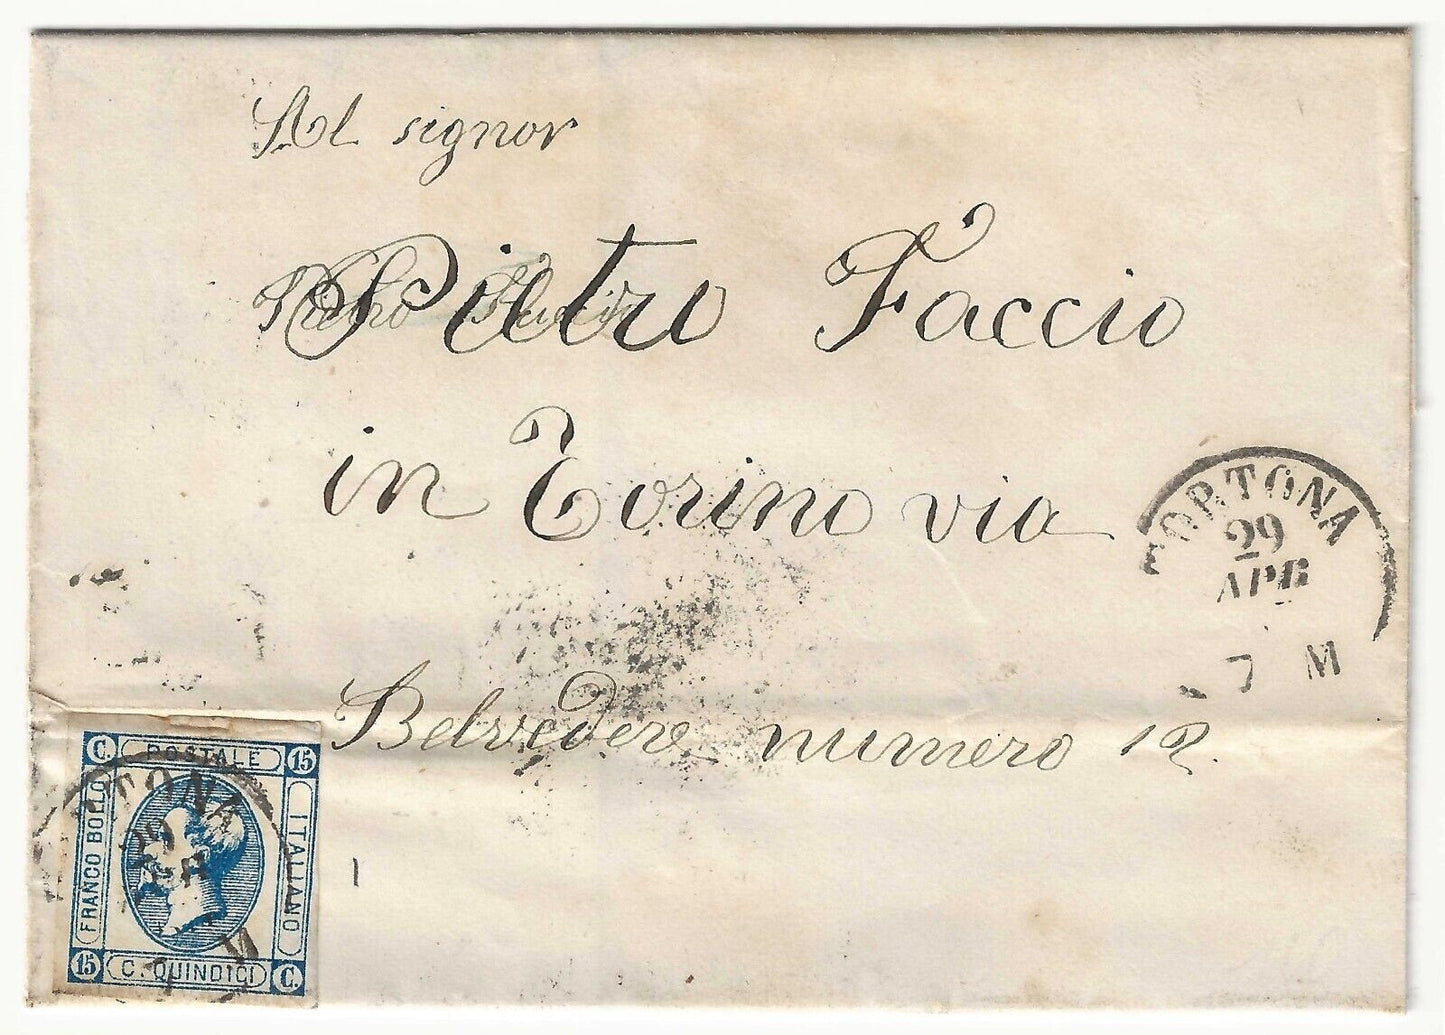 Al signor
Pietro Faccio
in Torino via
TORTONA
29
APR
7 M
Belvedere numero 12.
C. POSTALE 15
FRANCO BOLLO
ITALIANO
15 C. QUINDICI C.
TORTONA
29
APR
7 M